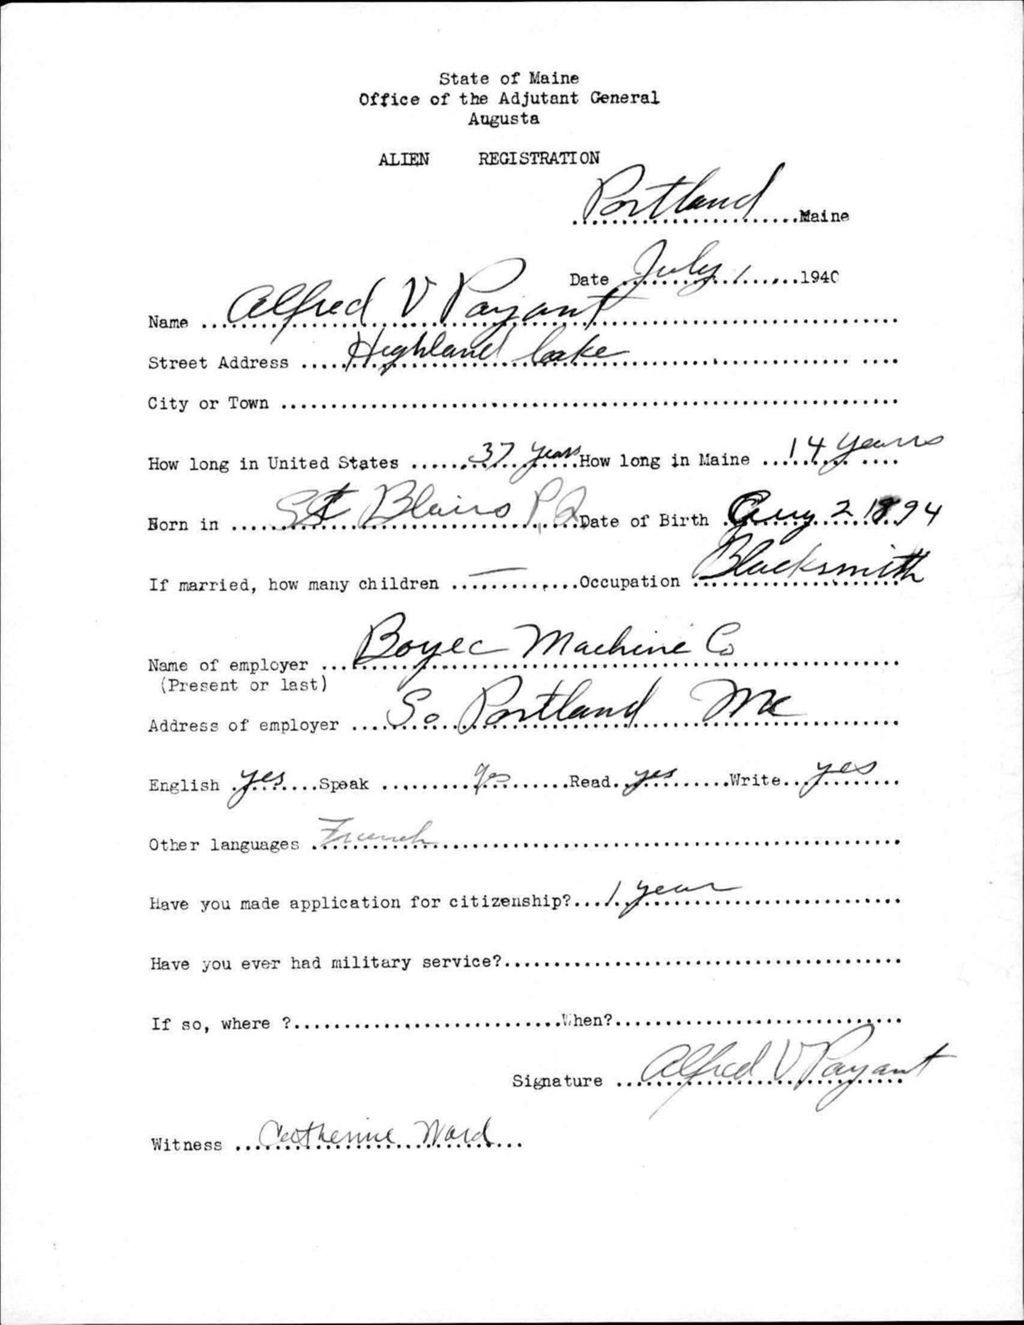 State of Maine
Office of the Adjutant General
Augusta
ALIEN REGISTRATION
Portland Maine
Date July 1 1940
Name Alfred V Payant
Street Address Highland Lake
City or Town
How long in United States 37 years How long in Maine 14 years
Born in St Blairs P.Q Date of Birth Aug 2 1894
If married, how many children — Occupation Blacksmith
Name of employer Boyec Machine Co
(Present or last)
Address of employer So. Portland Me
English yes Speak yes Read yes Write yes
Other languages French
Have you made application for citizenship? 1 year
Have you ever had military service?
If so, where ? When?
Signature Alfred V Payant
Witness Catherine Ward